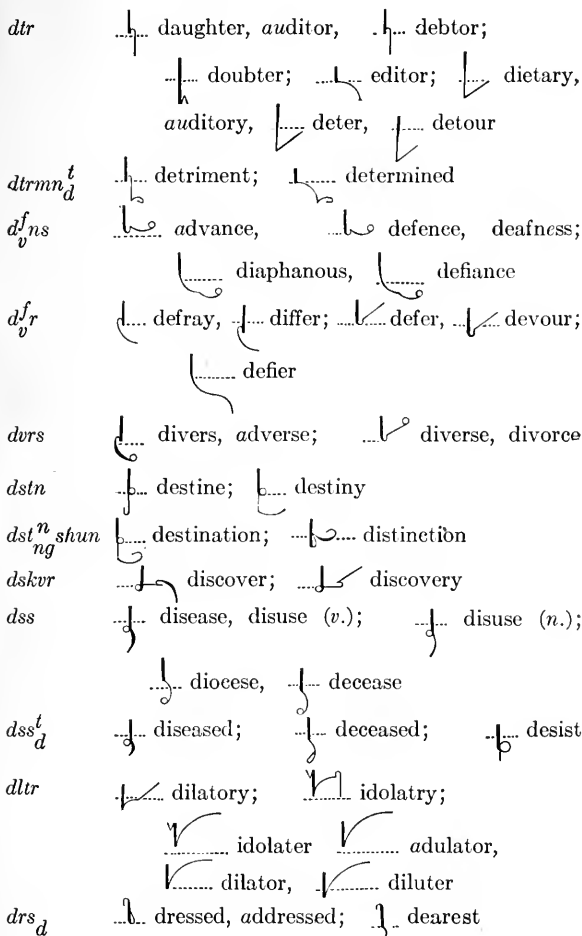 dtr daughter, auditor, debtor;
doubter; editor; dietary,
auditory, deter, detour
dtrmn t d detriment; determined
d f v ns advance, defence, deafness;
diaphanous, defiance
d f v r defray, differ; defer, devour;
defier
dvrs divers, adverse; diverse, divorce
dstn destine; destiny
dst n ng shun destination; distinction
dskvr discover; discovery
dss disease, disuse (v.); disuse (n.);
diocese, decease
dss t d diseased; deceased; desist
dltr dilatory; idolatry;
idolater adulator,
dilator, diluter
drs d dressed, addressed; dearest